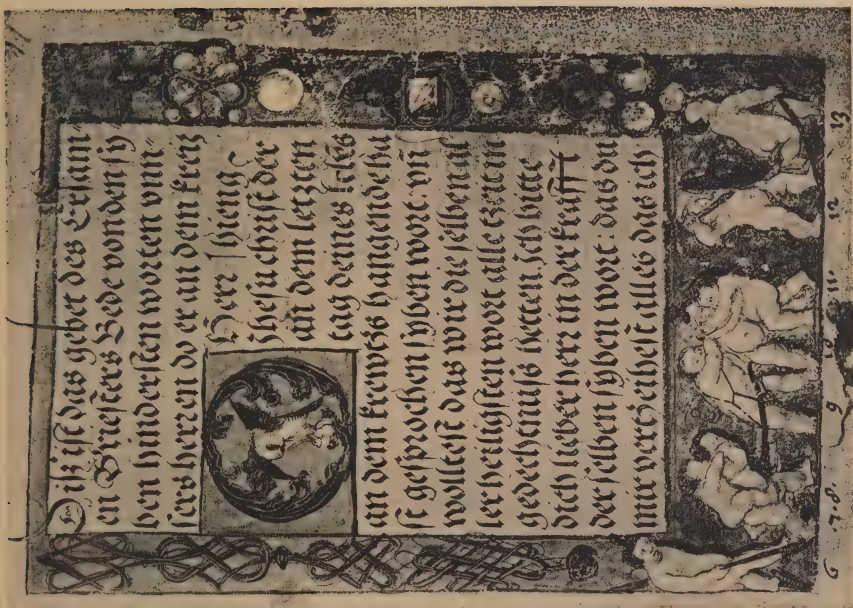 Disz ist das gebet des Ersam-
en Briesters Bede von den sy
ben hindersten worten vnn-
sers herren do er an dem kreiz
Herr / hieng
Jhesu christ der
an dem letzten
tag deines lebēs
an dem krewtz hangende ha
st gesprochen syben wort vn̄
wolltest das wir die selben al
ler heiligsten wort alle czeit in
gedechtnuß hetten Ich bitte
dich lieber herr in der krafft
der selben syben wort. das du
mir verzeihest alles das ich
6 7. 8. 9 10 11 12 13